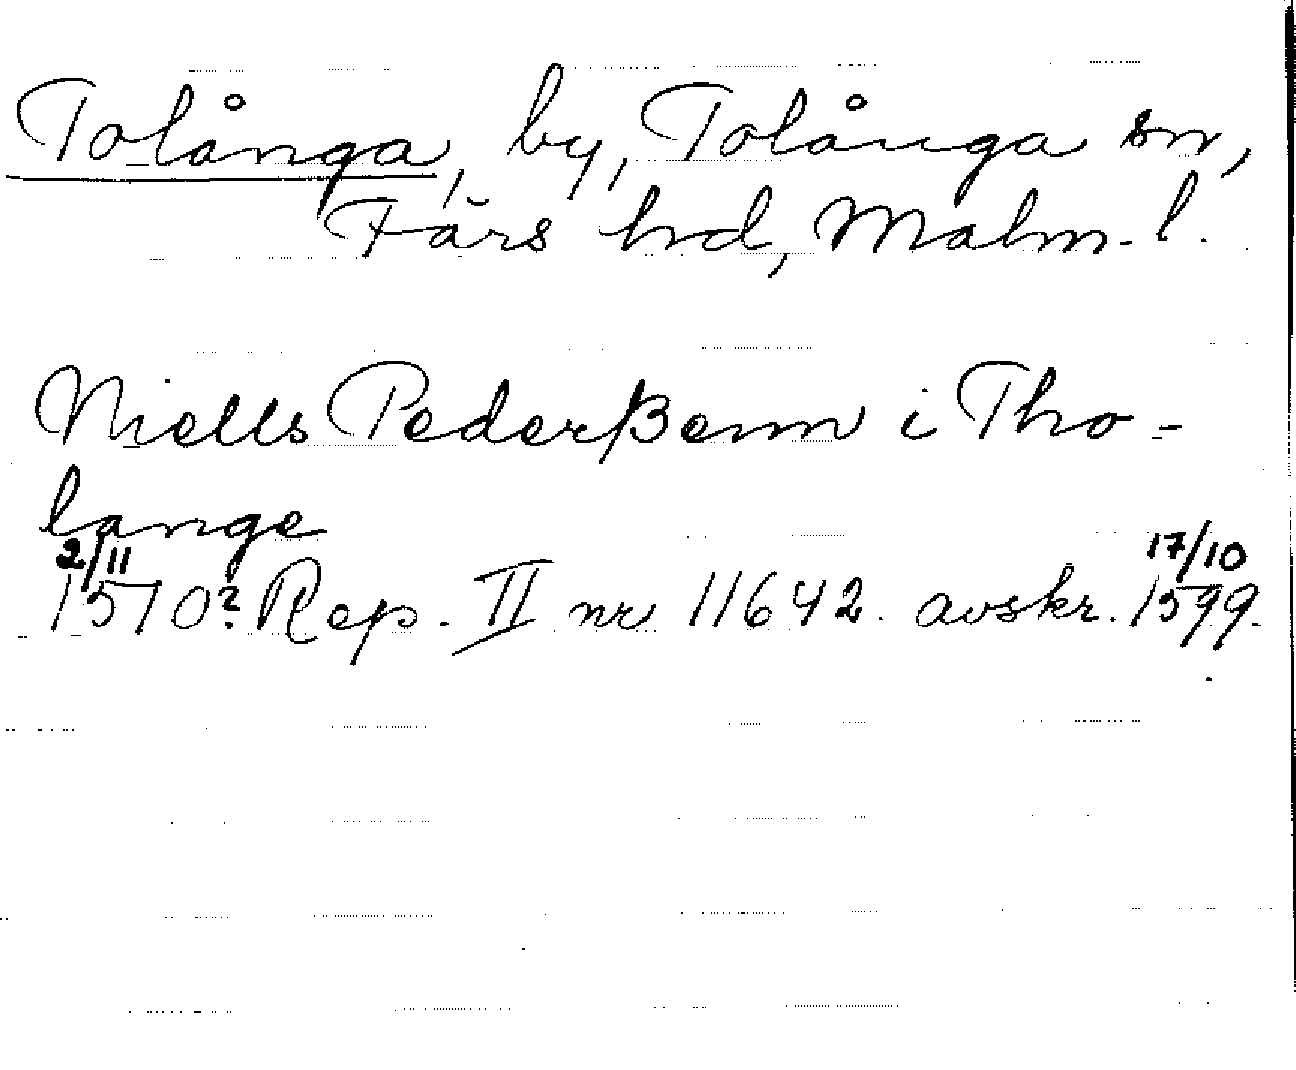 Tolånga, by, Tolånga sn,
Färs hd, Malm. l.
Niells Pederßenn i Tho-
lange
2/11 17/10
1510? Rep. II nr 11642. avskr. 1599.